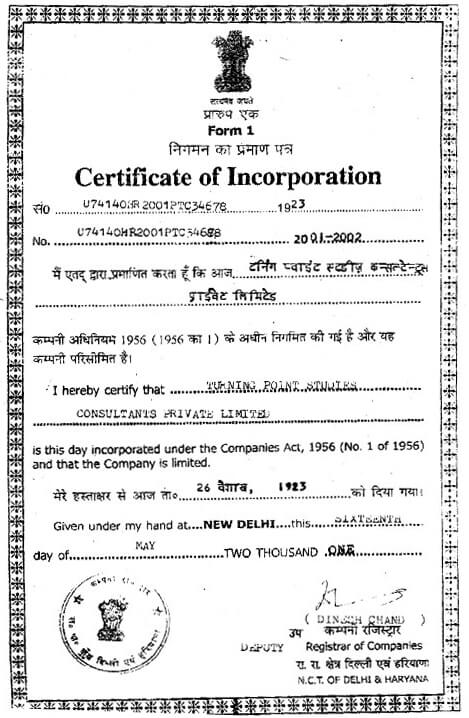 सत्यमेव जयते
प्रारुप एक
Form 1
निगमन का प्रमाण पत्र
Certificate of Incorporation
सं० U74140HR2001PTC34678 1923
No. U74140HR2001PTC34678 2001-2002
मैं एतद् द्वारा प्रमाणित करता हूँ कि आज टर्निंग प्वाइंट स्टडीज़ कन्सल्टेन्ट्स
प्राईवेट लिमिटेड
कम्पनी अधिनियम 1956 (1956 का 1) के अधीन निगमित की गई है और यह
कम्पनी परिसीमित है।
I hereby certify that TURNING POINT STUDIES
CONSULTANTS PRIVATE LIMITED
is this day incorporated under the Companies Act, 1956 (No. 1 of 1956)
and that the Company is limited.
मेरे हस्ताक्षर से आज ता० 26 वैशाख, 1923 को दिया गया।
Given under my hand at NEW DELHI this SIXTEENTH
day of MAY TWO THOUSAND ONE
( DINESH CHAND )
उप कम्पनी रजिस्ट्रार
DEPUTY Registrar of Companies
रा. रा. क्षेत्र दिल्ली एवं हरियाणा
N.C.T. OF DELHI & HARYANA